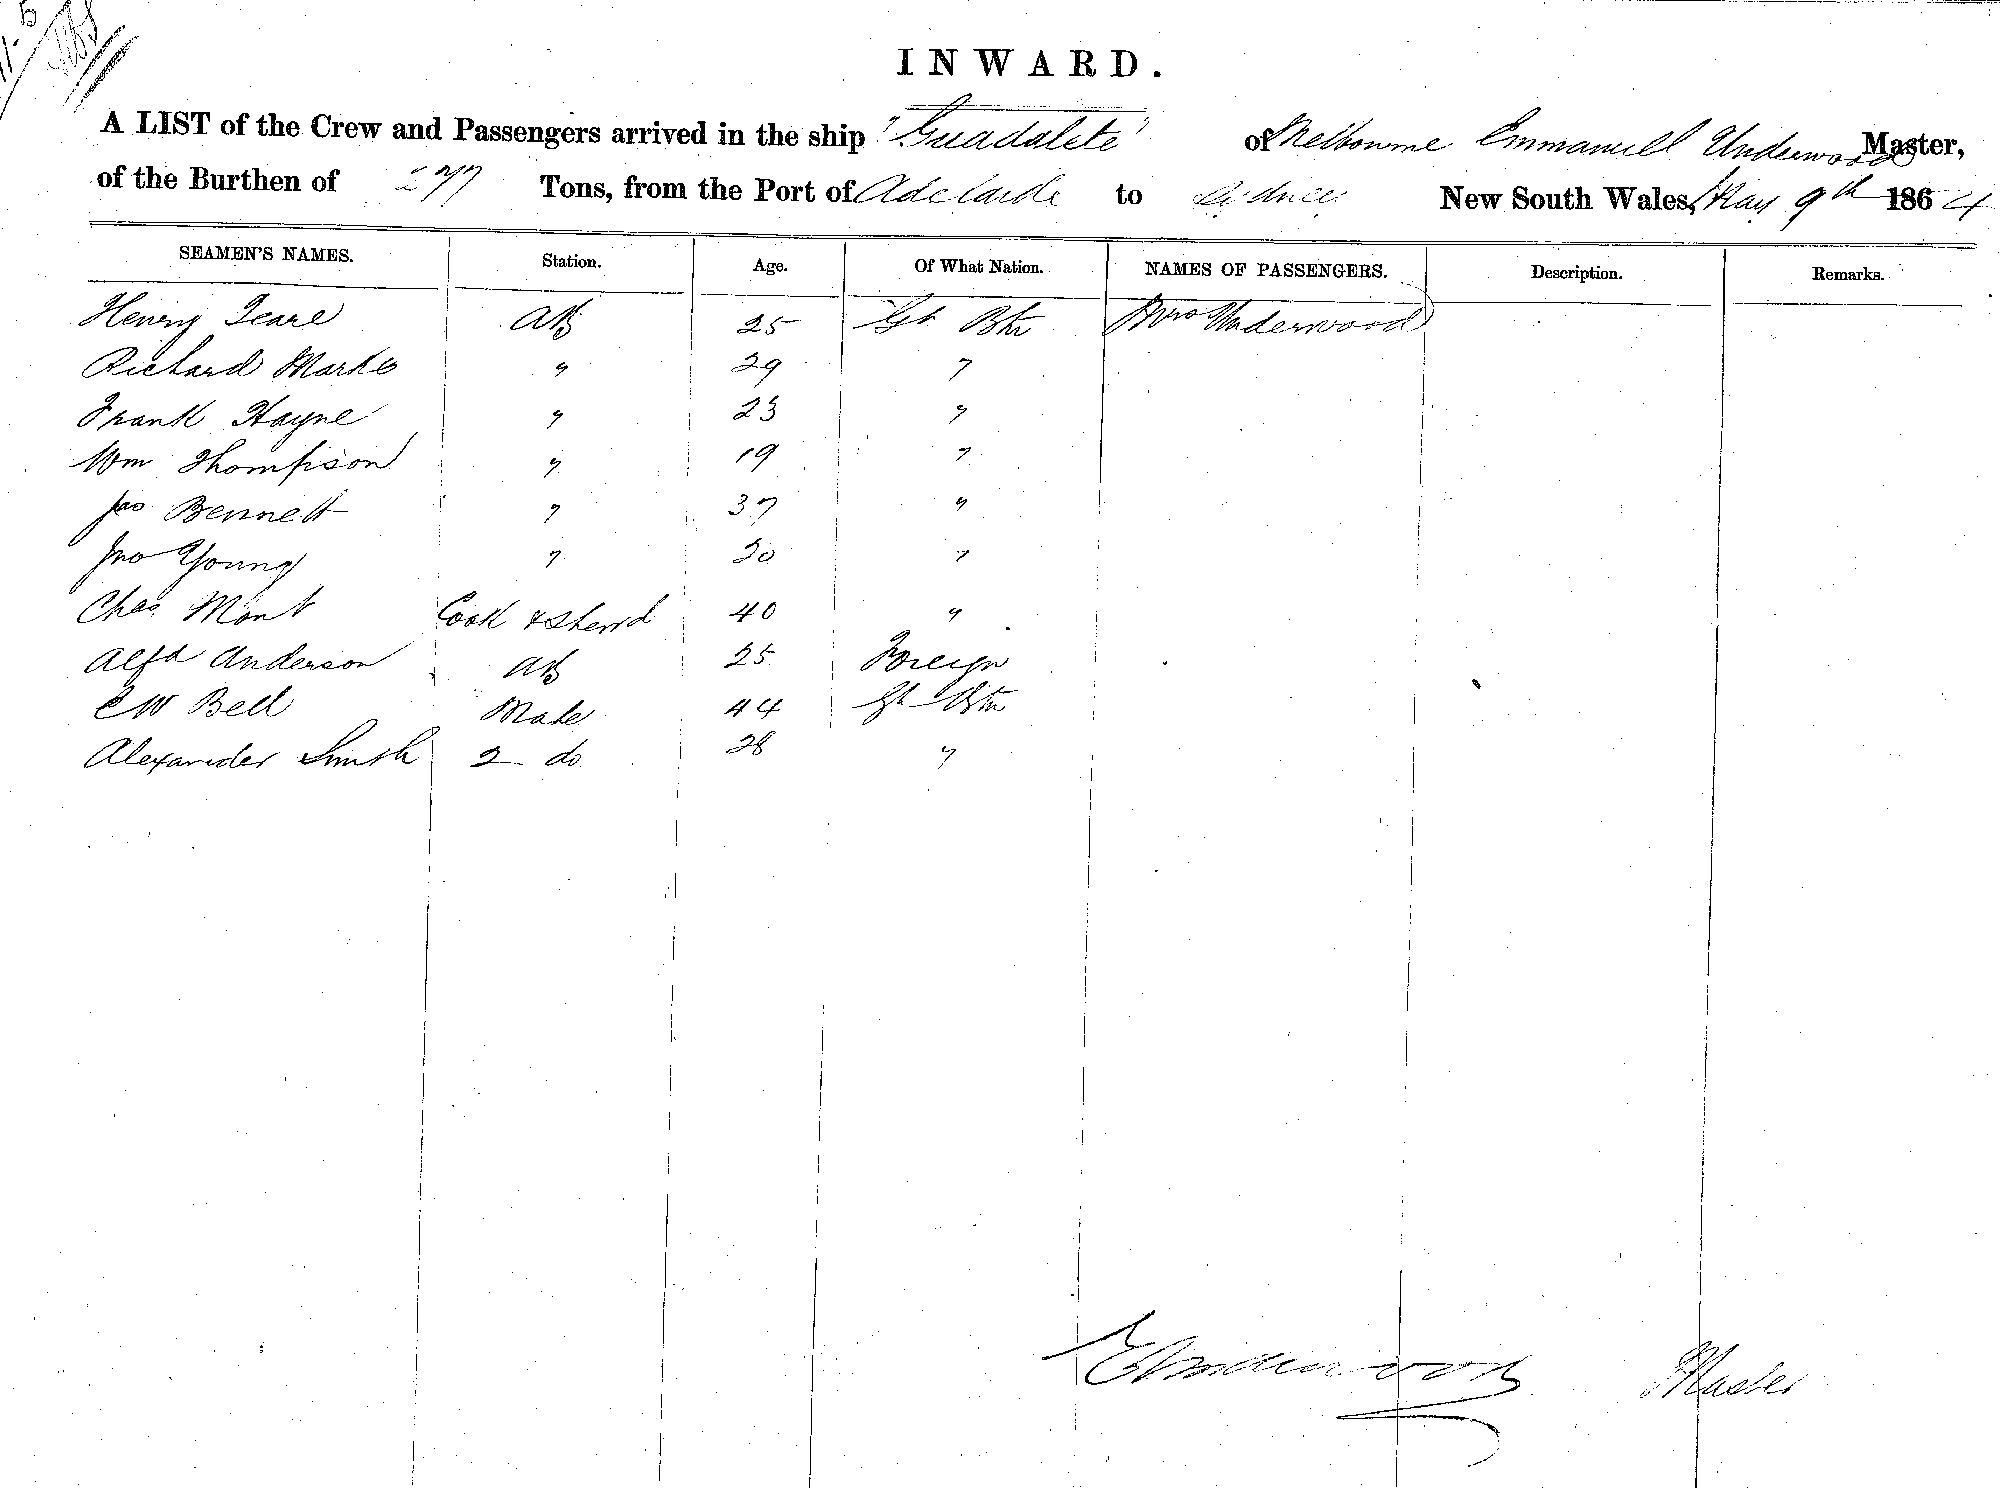 INWARD.
A LIST of the Crew and Passengers arrived in the ship "Guadalete" of Melbourne Emmanuell Underwood Master,
of the Burthen of 277 Tons, from the Port of Adelaide to Sydney New South Wales, May 9th 1864
SEAMEN'S NAMES. Station. Age. Of What Nation. NAMES OF PASSENGERS. Description. Remarks.
Henry Teare AB 25 Gt Btn Mrs Underwood
Richard Marks " 29 "
Frank Hayne " 23 "
Wm Thompson " 19 "
Jas Bennett " 37 "
Jno Young " 20 "
Chas Mont Cook & Stewd 40 "
Alfd Anderson AB 25 Foreign
E W Bell Mate 44 Gt Btn
Alexander Smith 2 do 28 "
E Underwood Master